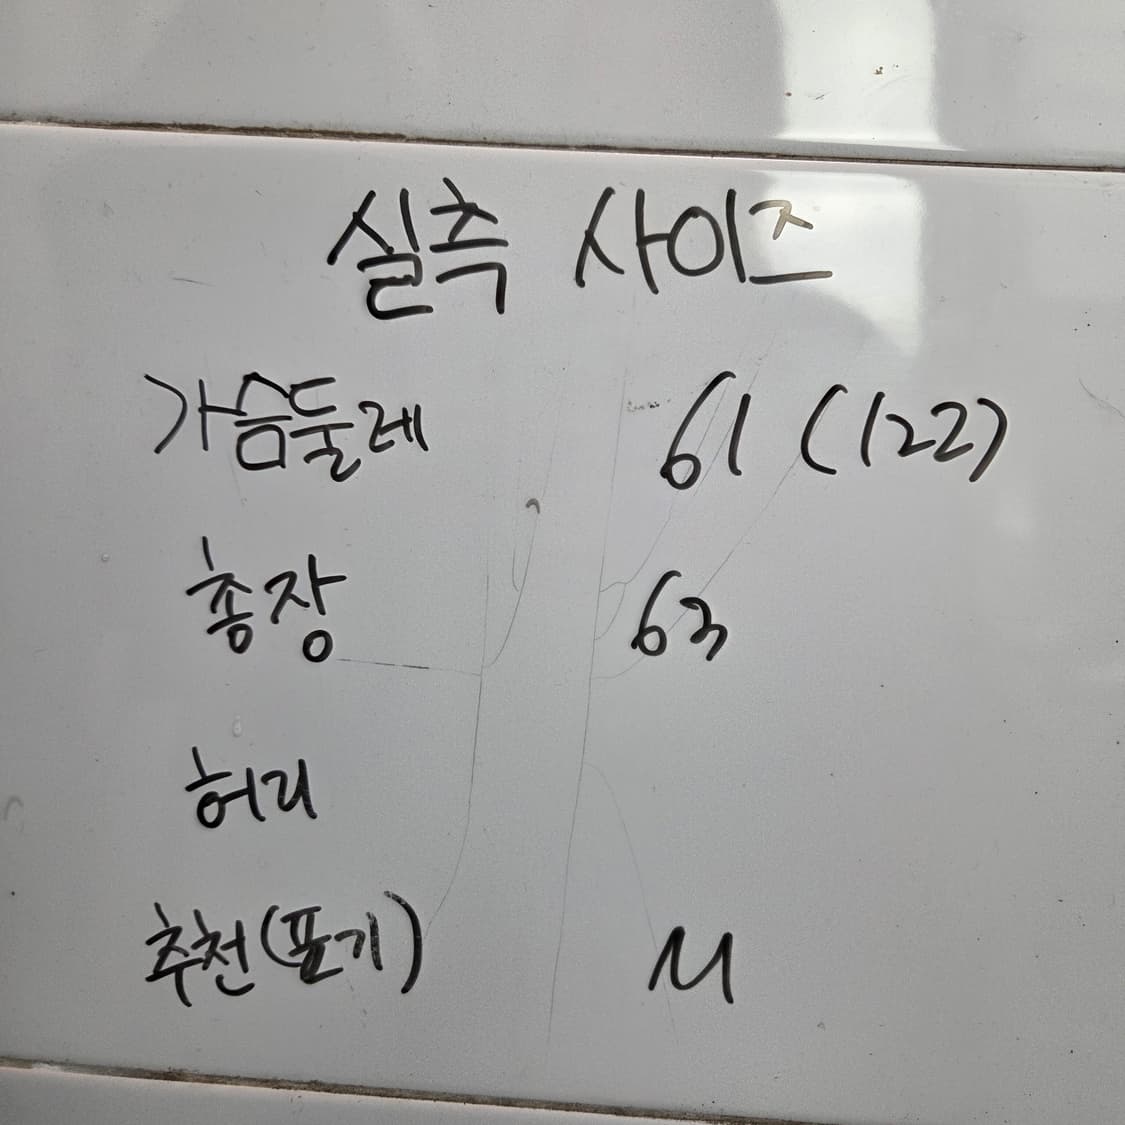 실측 사이즈
가슴둘레 61 (122)
총장 63
허리
추천(표기) M